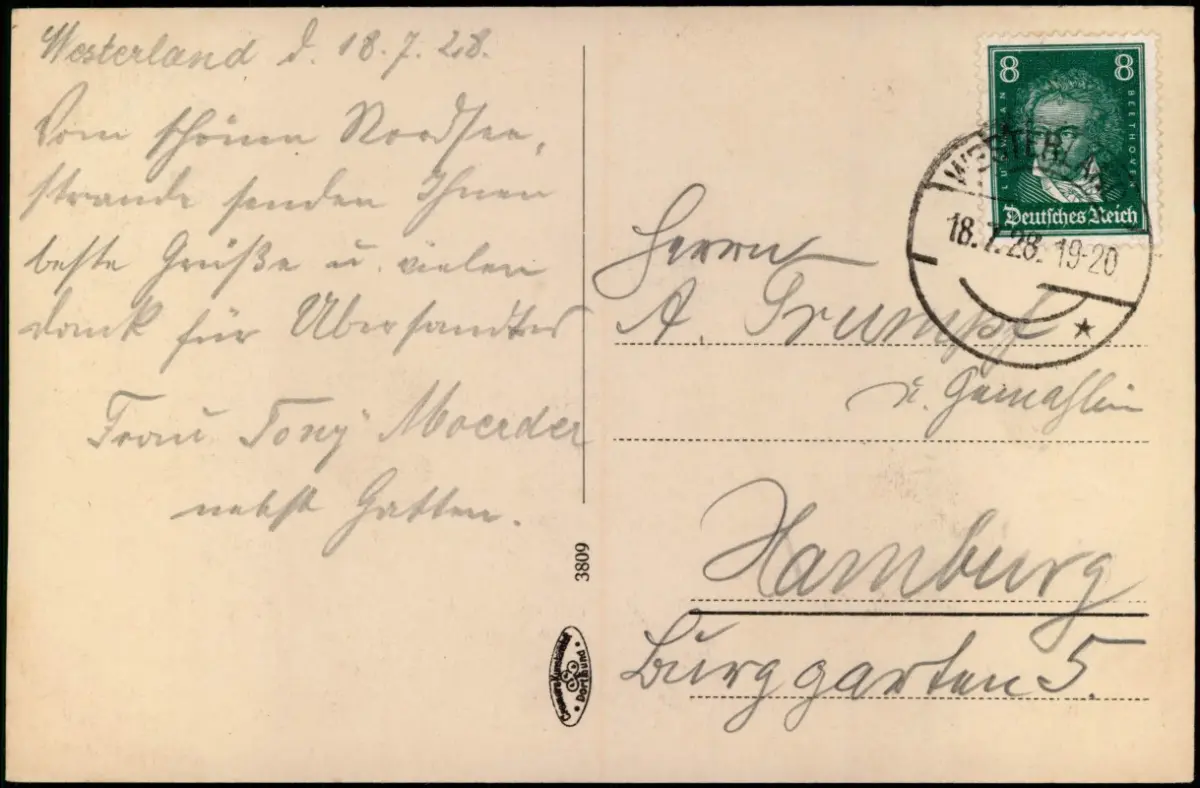 Westerland d. 18.7.28.
Vom schönen Nordsee,
strande senden Ihnen
beste Grüße u. vielen
Dank für Übersandtes
Frau Tony Moerder
nebst Gatten.
3809
Dortmund
8 8
LUDWIG VAN BEETHOVEN
Deutsches Reich
WESTERLAND
18.7.28. 19-20
Herrn
A. Trumpf
u. Gemahlin
Hamburg
Burggarten 5.